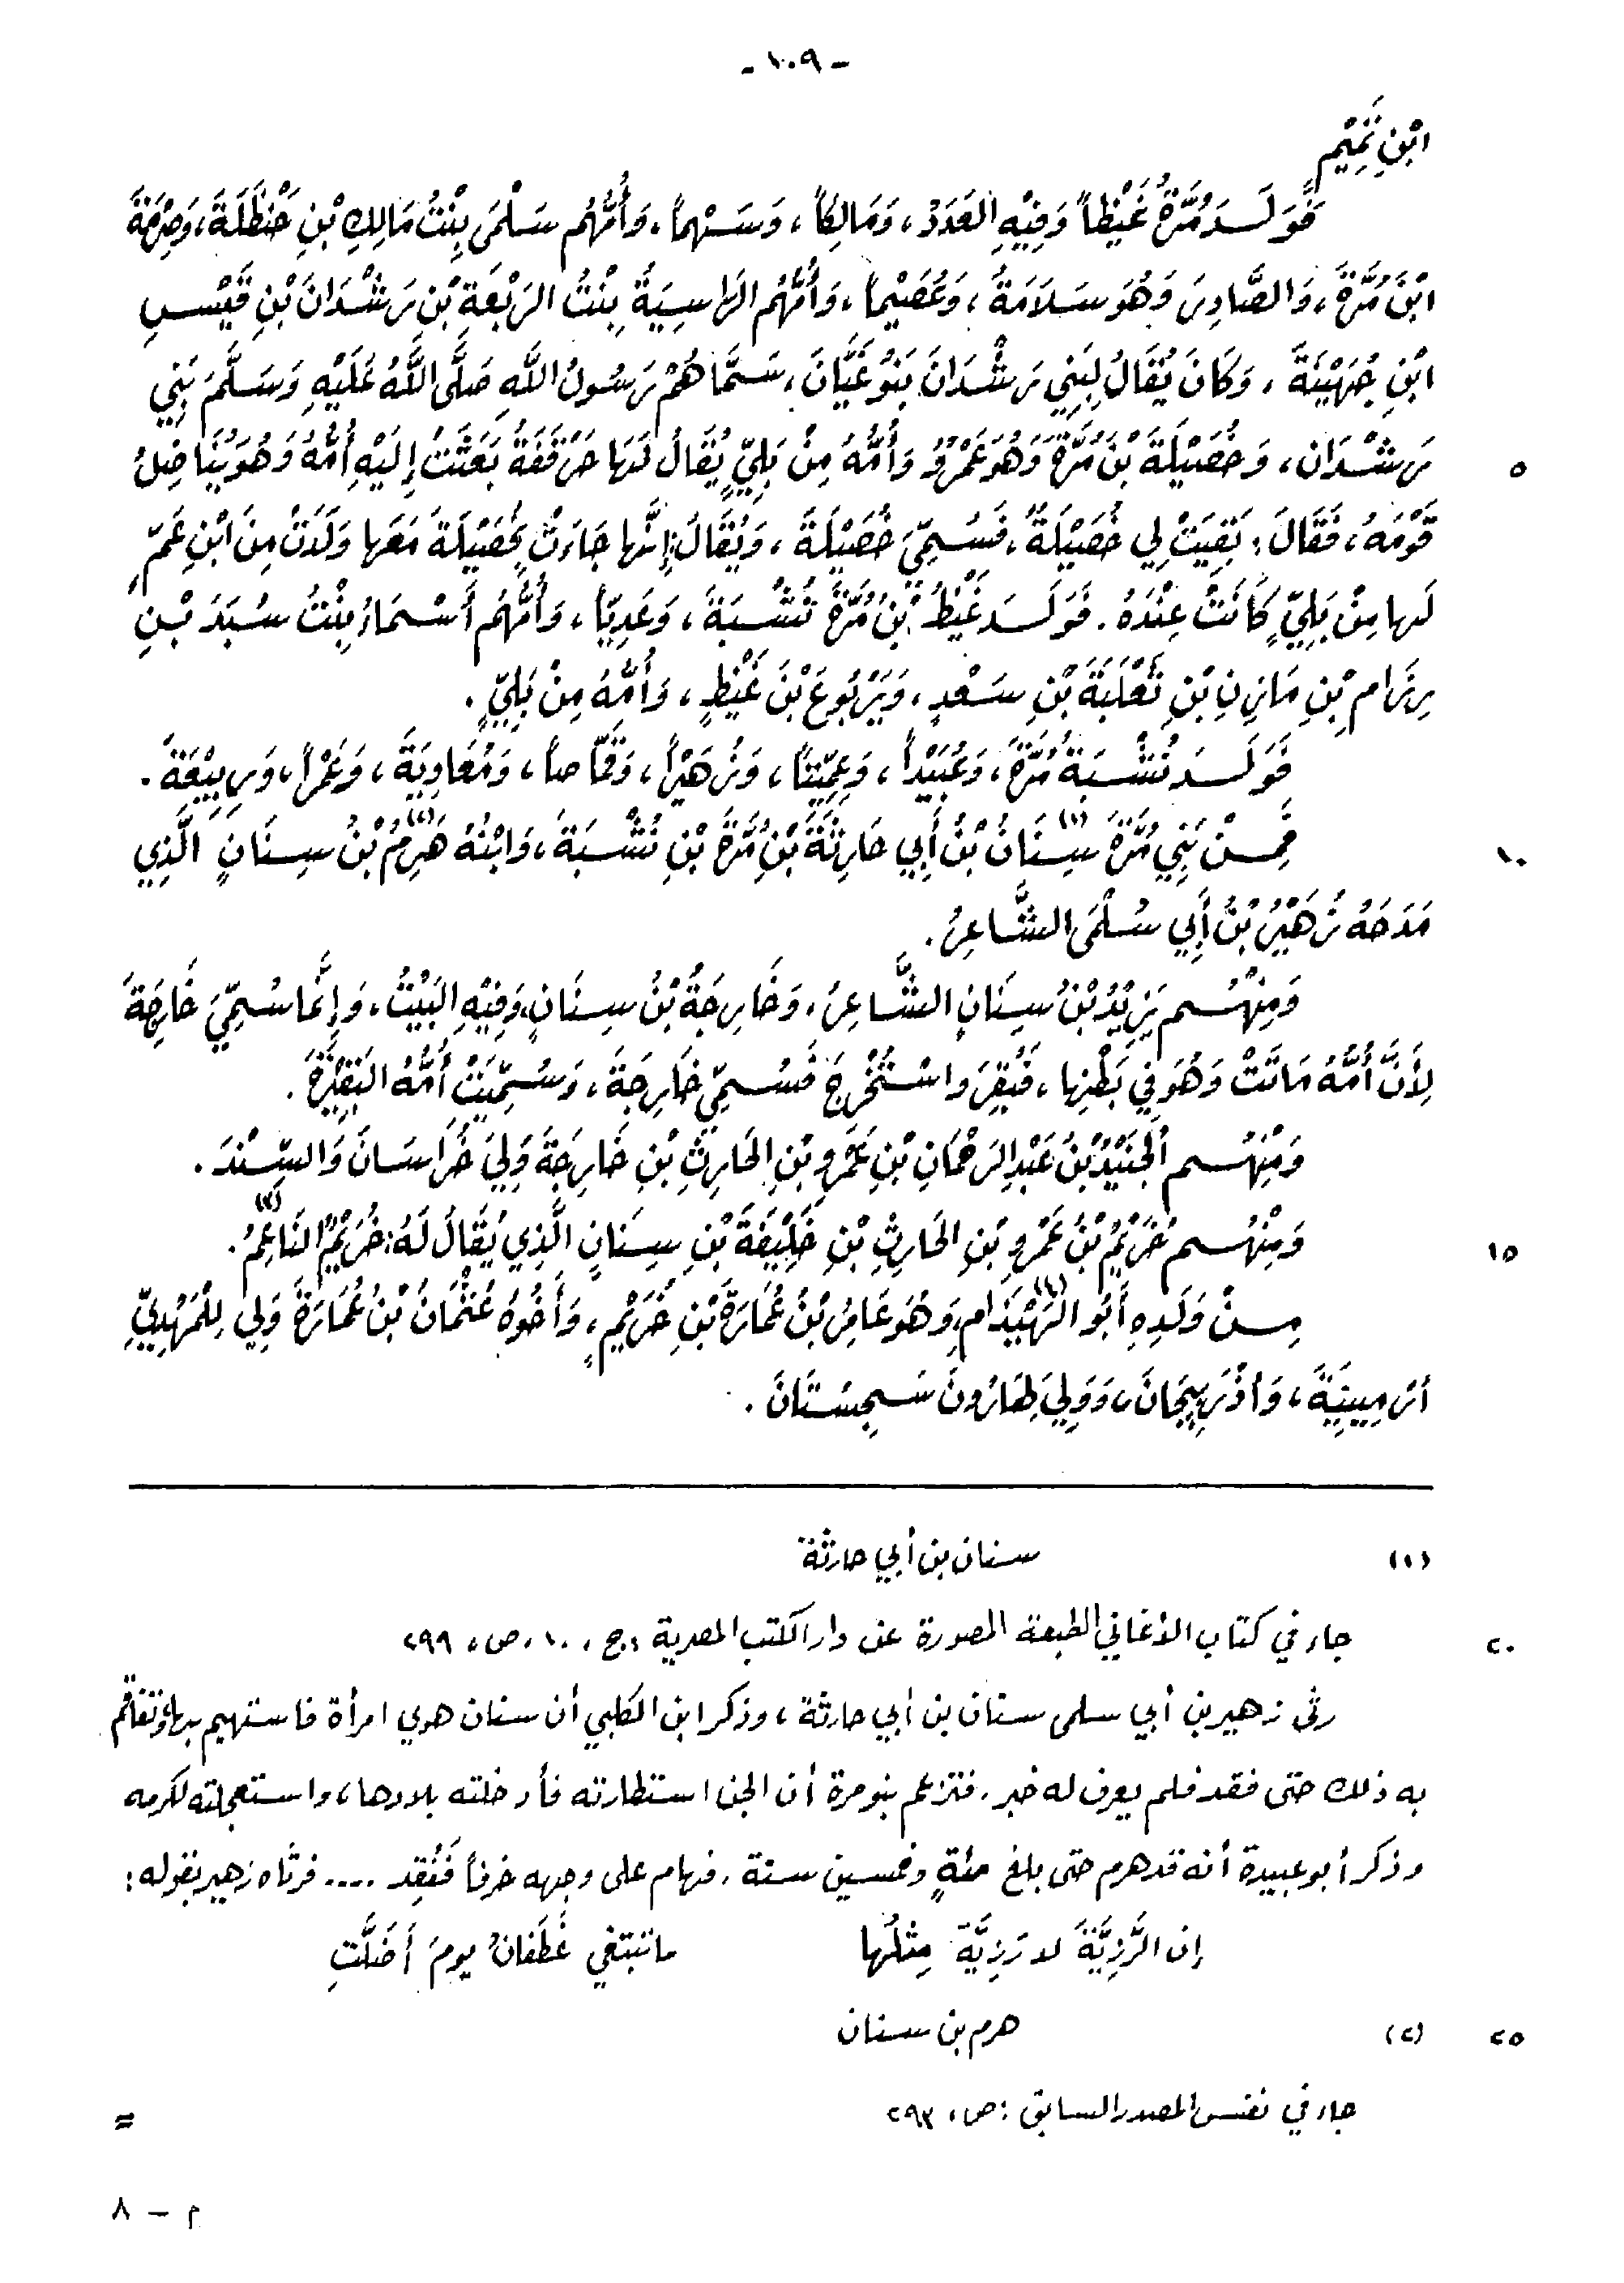 - ١٠٩ -
ابْنِ تَمِيْمٍ
فَوَلَدَ مُرَّةُ غَيْظاً وَفِيْهِ العَدَدُ، وَمَالِكاً، وَسَهْماً، وَأُمُّهُم سَلْمَى بِنْتُ مَالِكِ بْنِ حَنْظَلَةَ، وَصِرْمَةَ
ابْنَ مُرَّةَ، وَالصَّادِرَ وَهُوَ سَلَامَةُ، وَعُصَيْماً، وَأُمُّهُم الرَّاسِيَةُ بِنْتُ الرَّبْعَةِ بْنِ رَشْدَانَ بْنِ قَيْسِ
ابْنِ جُهَيْنَةَ، وَكَانَ يُقَالُ لِبَنِي رَشْدَانَ بَنُو غَيَّانَ، سَمَّاهُمْ رَسُولُ اللَّهِ صَلَّى اللَّهُ عَلَيْهِ وَسَلَّمَ بَنِي
٥ رَشْدَان، وَخُصَيْلَةَ بْنَ مُرَّةَ وَهُوَ عَمْرٌو وَأُمُّهُ مِنْ بَلِيٍّ يُقَالُ لَهَا حَرْقَفَةُ بَعَثَتْ إِلَيْهِ أُمُّهُ وَهُوَ يُنَاضِلُ
قَوْمَهُ، فَقَالَ: بَقِيَتْ لِي خُصَيْلَةٌ، فَسُمِّيَ خُصَيْلَةَ، وَيُقَالُ: إِنَّهَا جَاءَتْ بِخُصَيْلَةَ مَعَهَا وَلَدَتْ مِنَ ابْنِ عَمٍّ
لَها مِنْ بَلِيٍّ كَانَتْ عِنْدَهُ. فَوَلَدَ غَيْظُ بْنُ مُرَّةَ نُشْبَةَ، وَعَدِيّاً، وَأُمُّهُم أَسْمَاءُ بِنْتُ سُبَدَ بْنِ
رِزَامِ بْنِ مَازِنِ بْنِ ثَعْلَبَةَ بْنِ سَعْدٍ، وَيَرْبُوعَ بْنَ غَيْظٍ، وَأُمُّهُ مِنْ بَلِيٍّ.
فَوَلَدَ نُشْبَةُ مُرَّةَ، وَعُبَيْداً، وَعِمِّيْتاً، وَزُهَيْراً، وَقَمَّاصاً، وَمُعَاوِيَةَ، وَعَمْراً، وَرَبِيْعَةَ.
١٠ فَمِنْ بَنِي مُرَّةَ سِنَانُ(١) بْنُ أَبِي حَارِثَةَ بْنِ مُرَّةَ بْنِ نُشْبَةَ، وَابْنُهُ هَرِمُ(٢) بْنُ سِنَانٍ الَّذِي
مَدَحَهُ زُهَيْرُ بْنُ أَبِي سُلْمَى الشَّاعِرُ.
وَمِنْهُم يَزِيْدُ بْنُ سِنَانٍ الشَّاعِرُ، وَخَارِجَةُ بْنُ سِنَانٍ، وَفِيْهِ البَيْتُ، وَإِنَّمَا سُمِّيَ خَارِجَةَ
لِأَنَّ أُمَّهُ مَاتَتْ وَهُوَ فِي بَطْنِهَا، فَبُقِرَ واسْتُخْرِجَ فَسُمِّيَ خَارِجَةَ، وَسُمِّيَتْ أُمُّهُ البَقِيْرَةَ.
وَمِنْهُم الْجُنَيْدُ بْنُ عَبْدِ الرَّحْمَانِ بْنِ عَمْرِو بْنِ الحَارِثِ بْنِ خَارِجَةَ وَلِيَ خُرَاسَانَ وَالسِّنْدَ.
١٥ وَمِنْهُم خُرَيْمُ بْنُ عَمْرِو بْنِ الحَارِثِ بْنِ خَلِيْفَةَ بْنِ سِنَانٍ الَّذِي يُقَالُ لَهُ: خُرَيْمٌ النَّاعِمُ(٣).
مِنْ وَلَدِهِ أَبُو الهَيْذَامِ(٤)، وَهُوَ عَامِرُ بْنُ عُمَارَةَ بْنِ خُرَيْمٍ، وَأَخُوهُ عُثْمَانُ بْنُ عُمَارَةَ وَلِيَ لِلْمَهْدِيِّ
أَرْمِينِيَةَ، وَأَذْرَبِيجَانَ، وَوَلِيَ لِهَارُونَ سَجِسْتَانَ.
(١) سنان بن أبي حارثة
٢٠ جاء في كتاب الأغاني الطبعة المصورة عن دار الكتب المصرية: ج، ١٠، ص، ٢٩٩
رثى زهير بن أبي سلمى سنان بن أبي حارثة، وذكر ابن الكلبي أن سنان هوي امرأة فاستهيم بها، وتَفاقَم
به ذلك حتى فقد فلم يعرف له خبر، فتزعم بنو مرة أن الجن استطارته فأدخلته بلادها، واستعجلته لكرمه
وذكر أبو عبيدة أنه قد هرم حتى بلغ مئةٍ وخمسين سنة، فهام على وجهه خرفاً فَفُقِد .... فرثاه زهير بقوله:
إن الرَّزِيَّةَ لا رَزِيَّةَ مِثْلُها     ماتبتغي غَطَفانُ يومَ أَضَلَّتِ
٢٥ (٢) هرم بن سنان
جاء في نفس المصدر السابق: ص، ٢٩٣
=
م - ٨